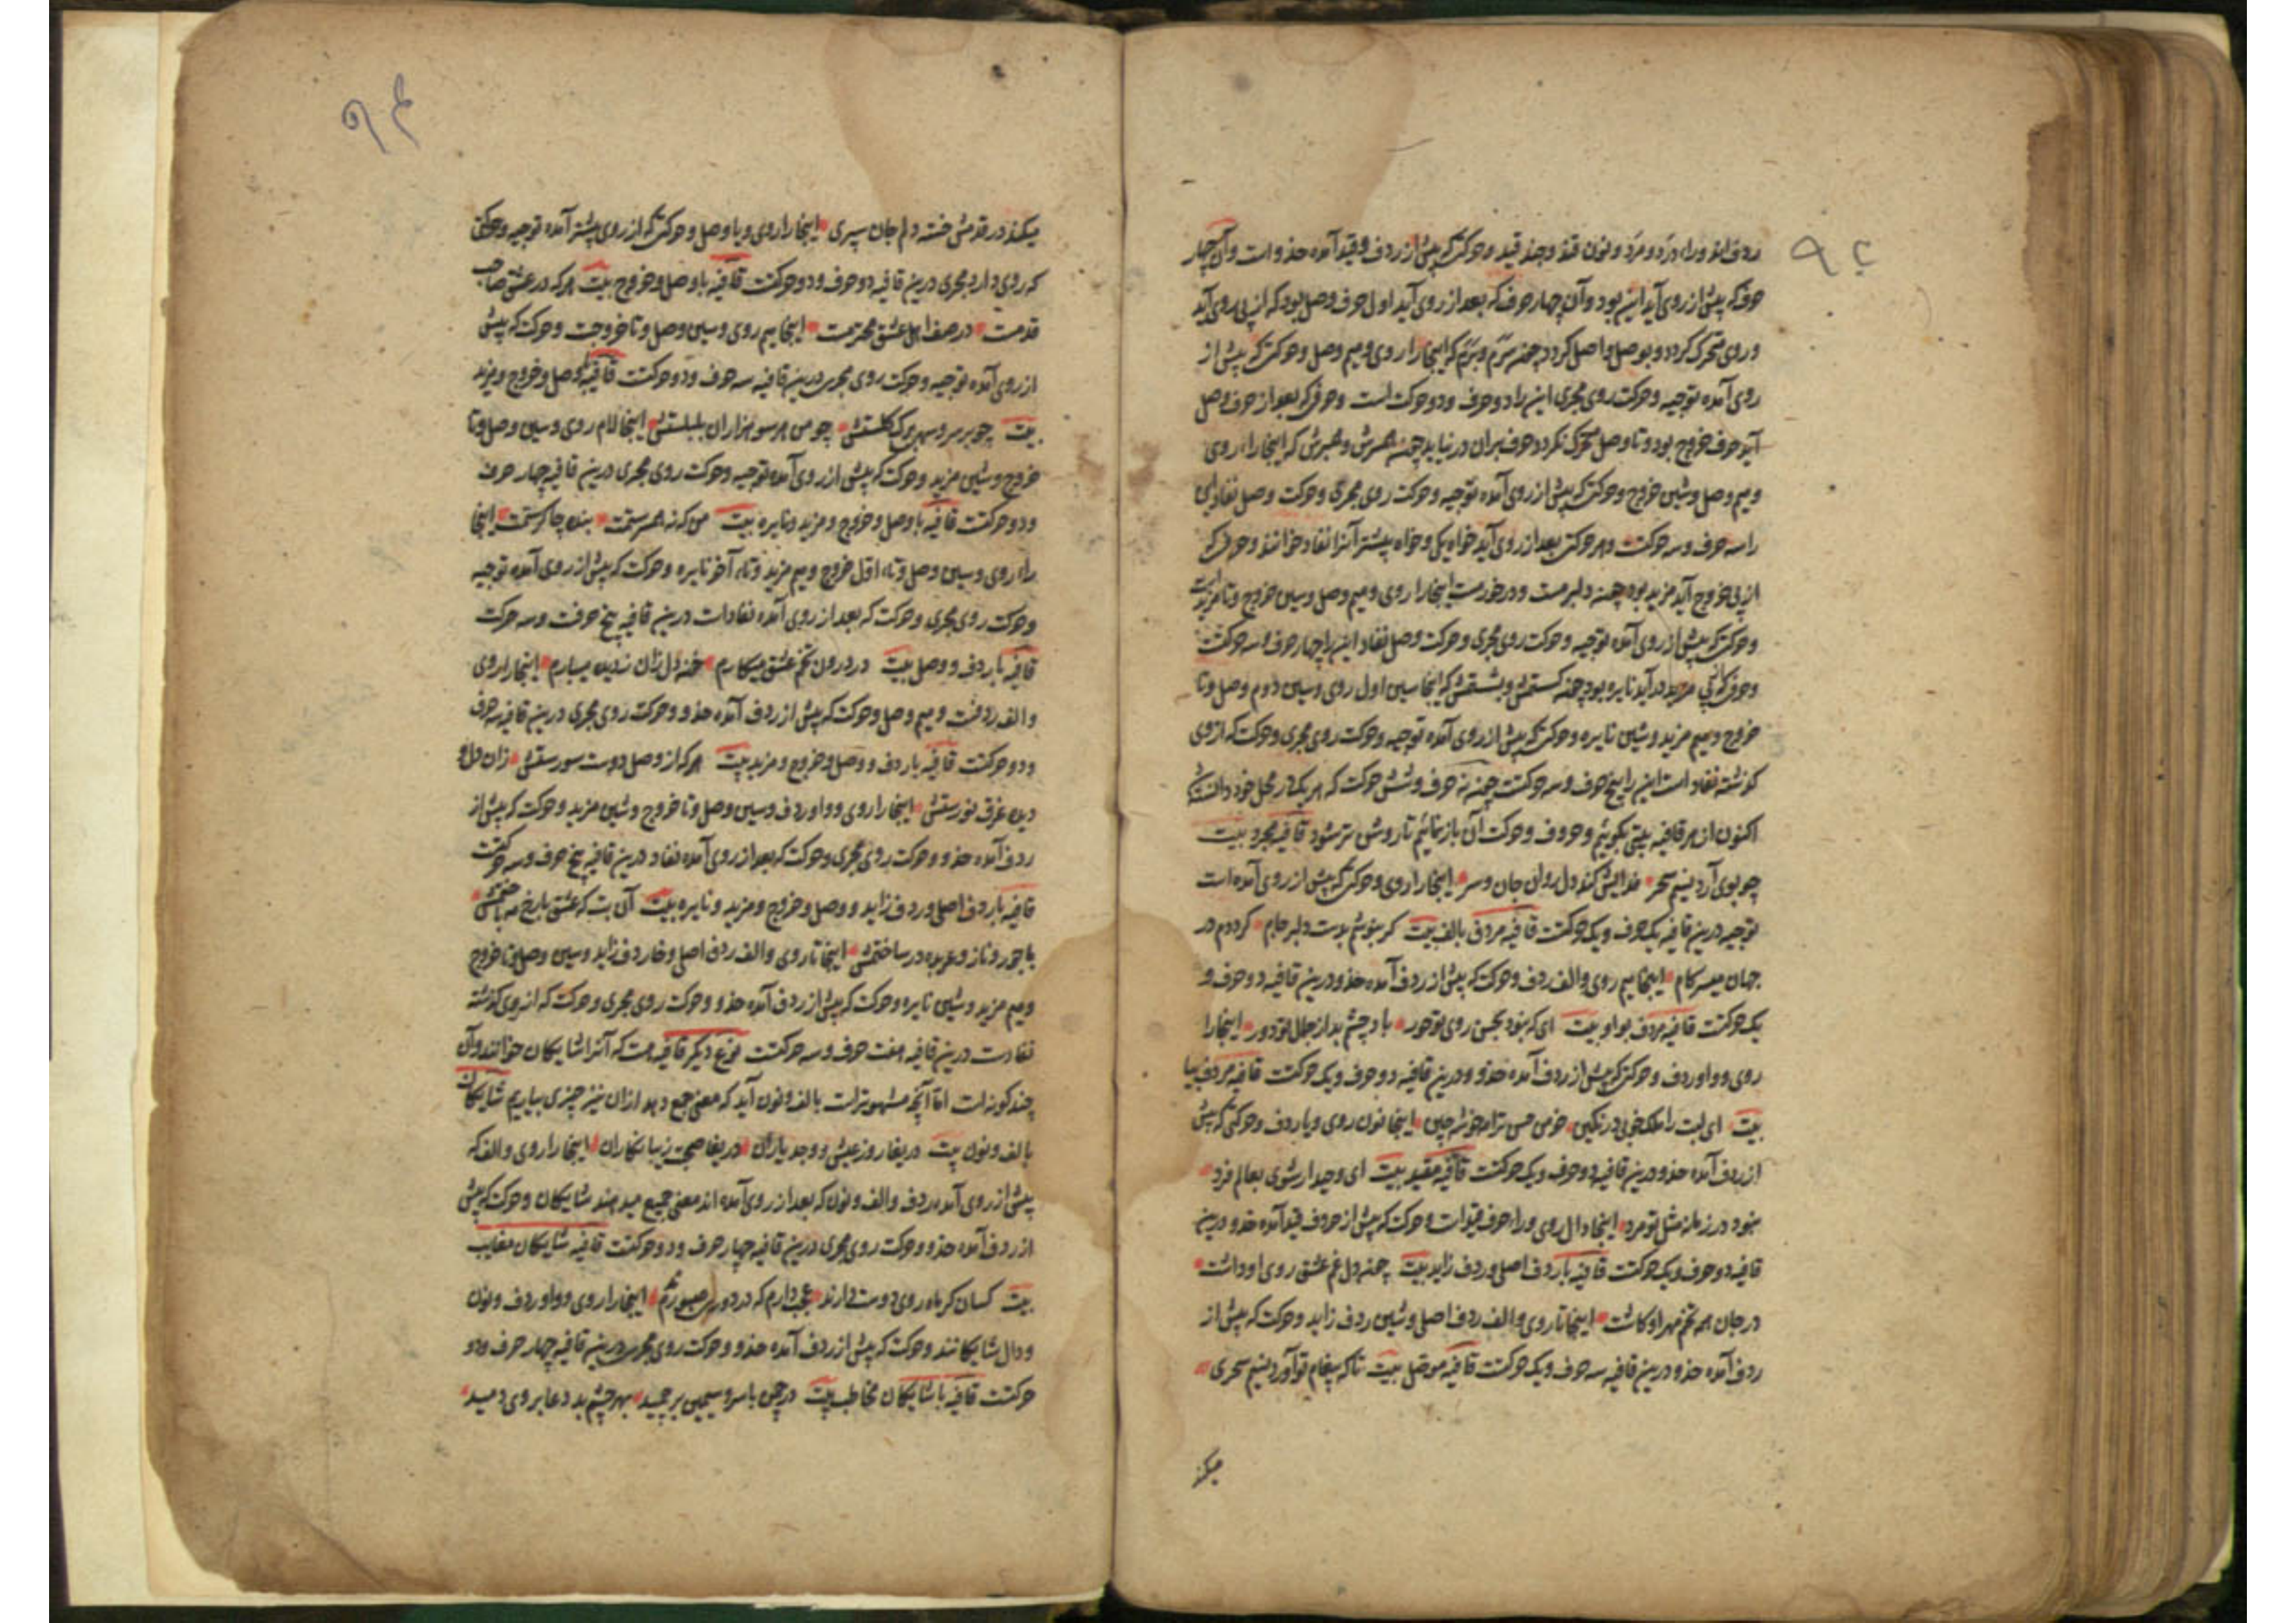 ۹۲
ردف اند و راء درد و مرد و نون قند و چند قید و حرکتی که پیش از ردف و قید آمده حذو است و آن چهار
حرف که پیش از روی آید این بود و آن چهار حرف که بعد از روی آید اول حرف وصل بود که از پی روی آید
و روی متحرک گردد و بوصل واصل گردد چنه سرم و برم که اینجا را روی و میم وصل و حرکتی که پیش از
روی آمده توجیه و حرکت روی مجری این را دو حرف و دو حرکت است و حرفی که بعد از حرف وصل
آید حرف خروج بود و تا وصل متحرک نگردد حرف بران در نیاید چنه همرش و همبرش که اینجا را روی
و میم وصل و شین خروج و حرکتی که پیش از روی آمده توجیه و حرکت روی مجری و حرکت وصل نفاد این
را سه حرف و سه حرکت و هر حرکتی بعد از روی آید خواه یکی و خواه بیشتر آنرا نفاد خوانند و حرفی که
از پی خروج آید مزید بود چنه دلبرمست و درخورمست اینجا را روی و میم وصل و سین خروج و تا مزیدست
و حرکتی که پیش از روی آمده توجیه و حرکت روی مجری و حرکت وصل نفاد این را چهار حرف و سه حرکت
و حرفی که از پی مزید در آید نایره بود چنه که اینجا سین اول روی و سین دوم وصل و تا
خروج و میم مزید و شین نایره و حرکتی که پیش از روی آمده توجیه و حرکت روی مجری و حرکت که از روی
گذشته نفاد است این را پنج حرف و سه حرکت چنه نه حرف و شش حرکت که هر یک در محل خود
اکنون از هر قافیه بیتی بگوییم و حروف و حرکت آن باز نمائیم تا روشن تر شود قافیه مجرد بیت
چو بوی آرد نسیم سحر فدایش کند دل روان جان و سر اینجا را روی و حرکتی که پیش از روی آمده است
توجیه درین قافیه یک حرف و یک حرکت قافیه مردف بالف بیت گر بنوشم بدست دلبر جام گرددم در
جهان میسر کام اینجا میم روی و الف ردف و حرکت که پیش از ردف آمده حذو درین قافیه دو حرف و
یک حرکت قافیه مردف بواو بیت ای که نبود بحسن روی تو حور باد چشم بد از جمال تو دور اینجا را
روی و واو ردف و حرکتی که پیش از ردف آمده حذو و درین قافیه دو حرف و یک حرکت قافیه مردف بیا
بیت ای لبت را ملک خوبی در نگین خرمن حسن ترا مه خوشه چین اینجا نون روی و یا ردف و حرکتی که پیش
از ردف آمده حذو درین قافیه دو حرف و یک حرکت قافیه مقید بیت ای وحید ار شوی بعالم فرد
نبود در زمانه مثل تو مرد اینجا دال روی و راء حرف قید است و حرکت که پیش از حرف قید آمده حذو و درین
قافیه دو حرف و یک حرکت قافیه با ردف اصل و ردف زاید بیت چنه دل غم عشق روی او داشت
در جان همه تخم مهر او کاشت اینجا تا روی و الف ردف اصل و شین ردف زاید و حرکت که پیش از
ردف آمده حذو درین قافیه سه حرف و یک حرکت قافیه موصل بیت تا که پیغام تو آورد نسیم سحری
میکند
میکند در قدمش خسته دلم جان سپری اینجا را روی و یا وصل و حرکتی که از روی پیشتر آمده توجیه و حرکتی
که روی دارد مجری درین قافیه دو حرف و دو حرکت قافیه با وصل و خروج بیت هر که در عشق صاحب
قدمست در صف اهل عشق محترمست اینجا میم روی و سین وصل و تا خروجست و حرکت که پیش
از روی آمده توجیه و حرکت روی مجری درین قافیه سه حرف و دو حرکت قافیه وصل و خروج و مزید
بیت چو بر سرو گلستش چو من هر سو هزاران بلبلستش اینجا لام روی و سین وصل و تا
خروج و شین مزید و حرکت که پیش از روی آمده توجیه و حرکت روی مجری درین قافیه چهار حرف
و دو حرکت قافیه با وصل و خروج و مزید و نایره بیت من که نه همرستمت بنده چاکرستمت اینجا
راء روی و سین وصل و تاء اول خروج و میم مزید و تاء آخر نایره و حرکت که پیش از روی آمده توجیه
و حرکت روی مجری و حرکت که بعد از روی آمده نفادات درین قافیه پنج حرفت و سه حرکت
قافیه با ردف و وصل بیت در درون تخم عشق میکارم خنه دل زان ز دیده میبارم اینجا را روی
و الف ردفت و میم وصل و حرکت که پیش از ردف آمده حذو و حرکت روی مجری درین قافیه سه حرف
و دو حرکت قافیه با ردف و وصل و خروج و مزید بیت هر که از وصل دوست سورستش زان دل و
دیده غرق نورستش اینجا را روی و واو ردف و سین وصل و تا خروج و شین مزید و حرکت که پیش از
ردف آمده حذو و حرکت روی مجری و حرکت که بعد از روی آمده نفاد درین قافیه پنج حرف و سه حرکت
قافیه با ردف اصل و ردف زاید و وصل و خروج و مزید و نایره بیت آن بت که عشق با رخ مه
با جور و ناز و عربده در ساختمش اینجا تا روی و الف ردف اصل و خا ردف زاید و سین وصل و تا خروج
و میم مزید و شین نایره و حرکت که پیش از ردف آمده حذو و حرکت روی مجری و حرکت که از روی گذشته
نفادست درین قافیه هفت حرف و سه حرکت نوع دیگر قافیه است که آنرا شایکان خوانند و آن
چند گونه است اما آنچه مشهورترست بالف و نون آید که معنی جمع دهد ازان نیز چیزی بیاریم شایکان
بالف و نون بیت دریغا روز عیش و وجد یاران دریغا صحبت زیبا نگاران اینجا را روی و الف که
پیش از روی آمده ردف و الف و نون که بعد از روی آمده اند معنی جمیع میدهند شایکان و حرکت که پیش
از ردف آمده حذو و حرکت روی مجری درین قافیه چهار حرف و دو حرکت قافیه شایکان مغایب
بیت کسان کز ماه روی دوست دارند عجب دارم که در دور اینجا را روی و واو ردف و نون
و دال شایکانند و حرکت که پیش از ردف آمده حذو و حرکت روی مجری درین قافیه چهار حرف و دو
حرکت قافیه با شایکان مخاطب بیت در چمن با سرو سیمین بر چمید بهر چشم بد دعا بر وی دمید